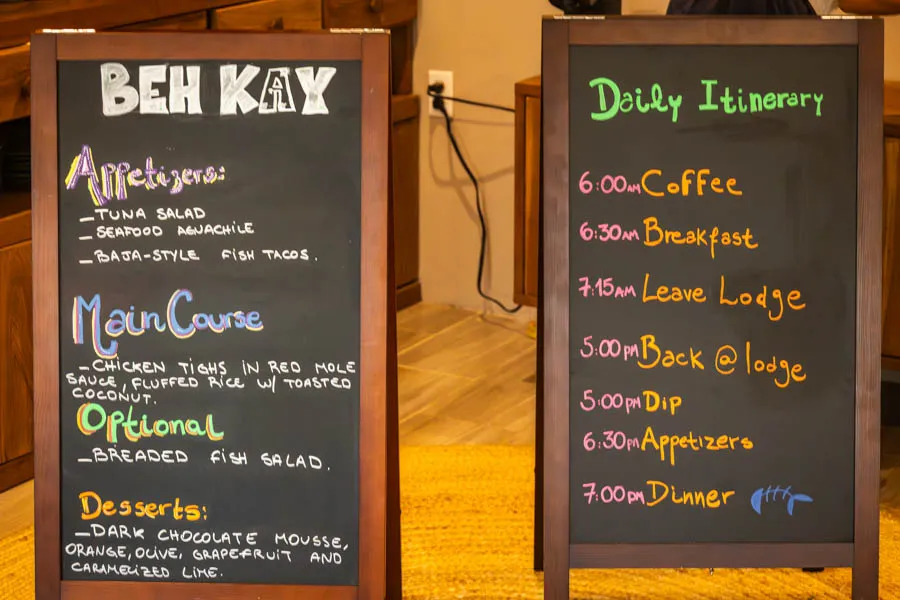 BEH KAY
Appetizers:
_TUNA SALAD
_SEAFOOD AGUACHILE
_BAJA-STYLE FISH TACOS.
Main Course
_CHICKEN TIGHS IN RED MOLE
SAUCE, FLUFFED RICE W/ TOASTED
COCONUT.
Optional
_BREADED FISH SALAD.
Desserts:
_DARK CHOCOLATE MOUSSE,
ORANGE, OLIVE, GRAPEFRUIT AND
CARAMELIZED LIME.
Daily Itinerary
6:00AM Coffee
6:30AM Breakfast
7:15AM Leave Lodge
5:00pm Back @ lodge
5:00pm Dip
6:30pm Appetizers
7:00pm Dinner